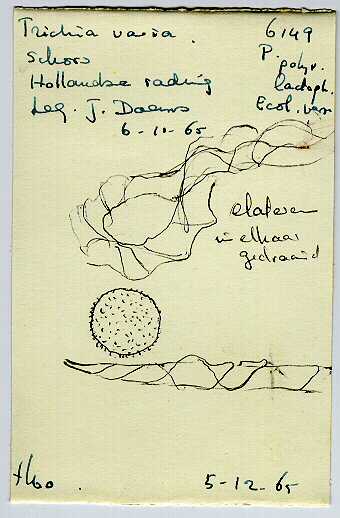 Trichia varia.
Schors
Hollandse rading
Leg. J. Daams
6-11-65
6149
P.
polyv.
Ecol. var
elateren
in elkaar
gedraaid
5-12-65